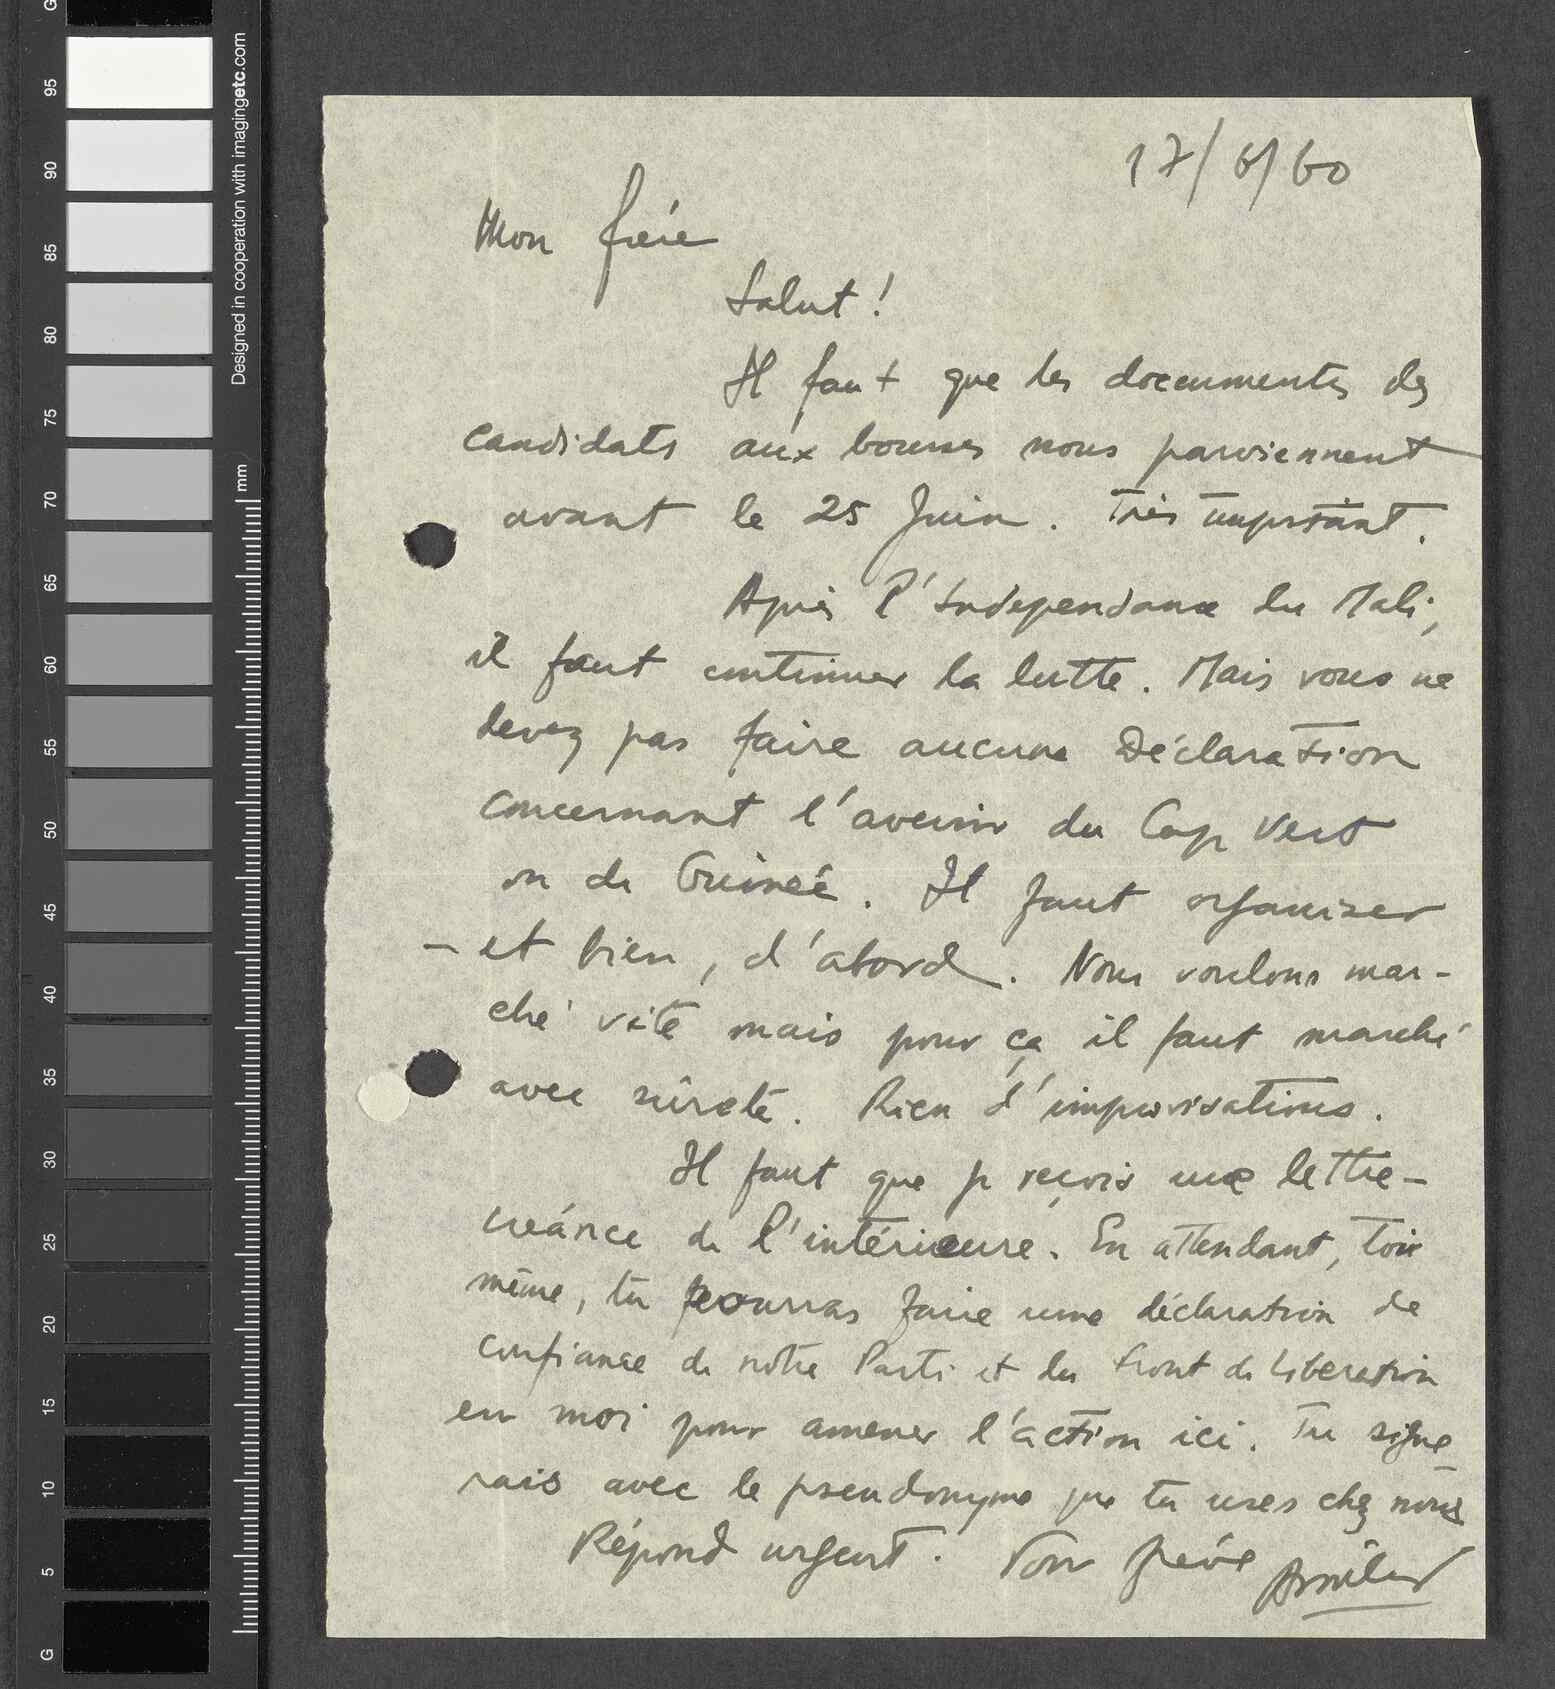 G
95
90
85
80
75
70
65
60
55
50
45
40
35
30
25
20
15
10
5
G
Designed in cooperation with imagingetc.com
mm
17/6/60
Mon frére
Salut!
Il faut que les documents des
candidats aux bourses nous parviennent
avant le 25 Juin. Très important.
Après l'Independance du Mali,
il faut continuer la lutte. Mais vous ne
devez pas faire aucune Déclaration
concernant l'avenir du Cap Vert
ou de Guinée. Il faut organiser
- et bien, d'abord. Nous voulons mar-
ché vite mais pour ça il faut marché
avec sûreté. Rien d'improvisations.
Il faut que je reçois une lettre-
créánce de l'intérieure. En attendant, toi
même, tu pourras faire une déclaration de
confiance de notre Parti et du Front de Liberation
en moi pour amener l'action ici. Tu signe
rais avec le pseudonyme que tu uses chez nous
Répond urgent. Ton frére